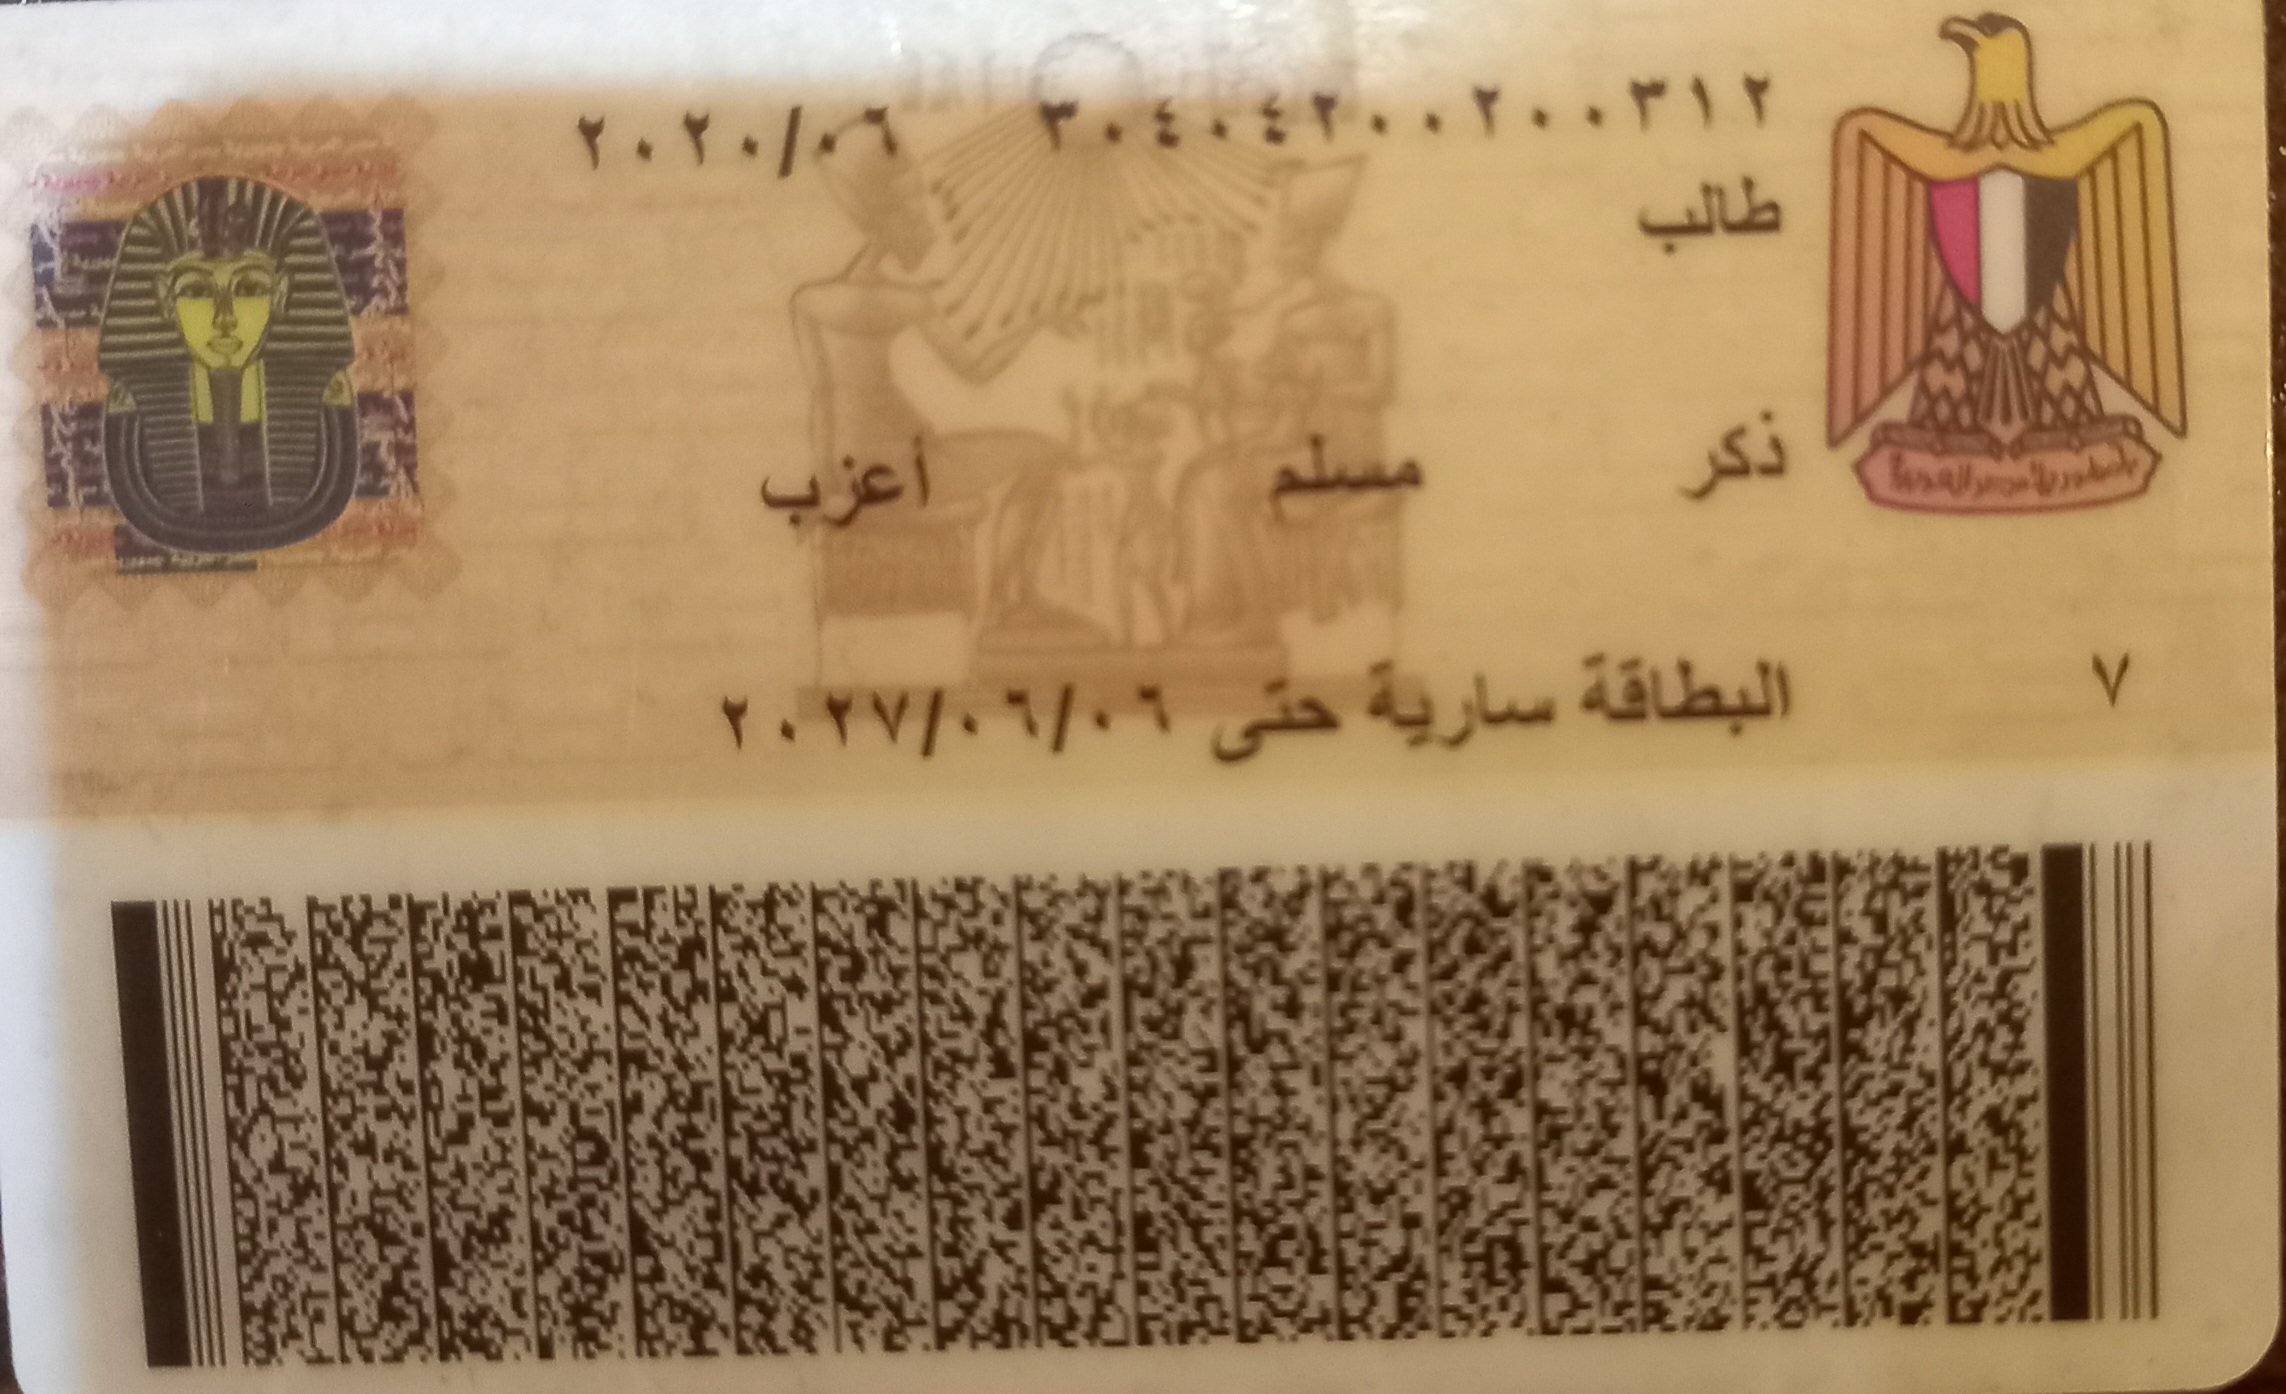 ٣٠٤٠٤٢٠٠٢٠٠٣١٢ ٢٠٢٠/٠٦
طالب
ذكر مسلم أعزب
البطاقة سارية حتى ٢٠٢٧/٠٦/٠٦
٧